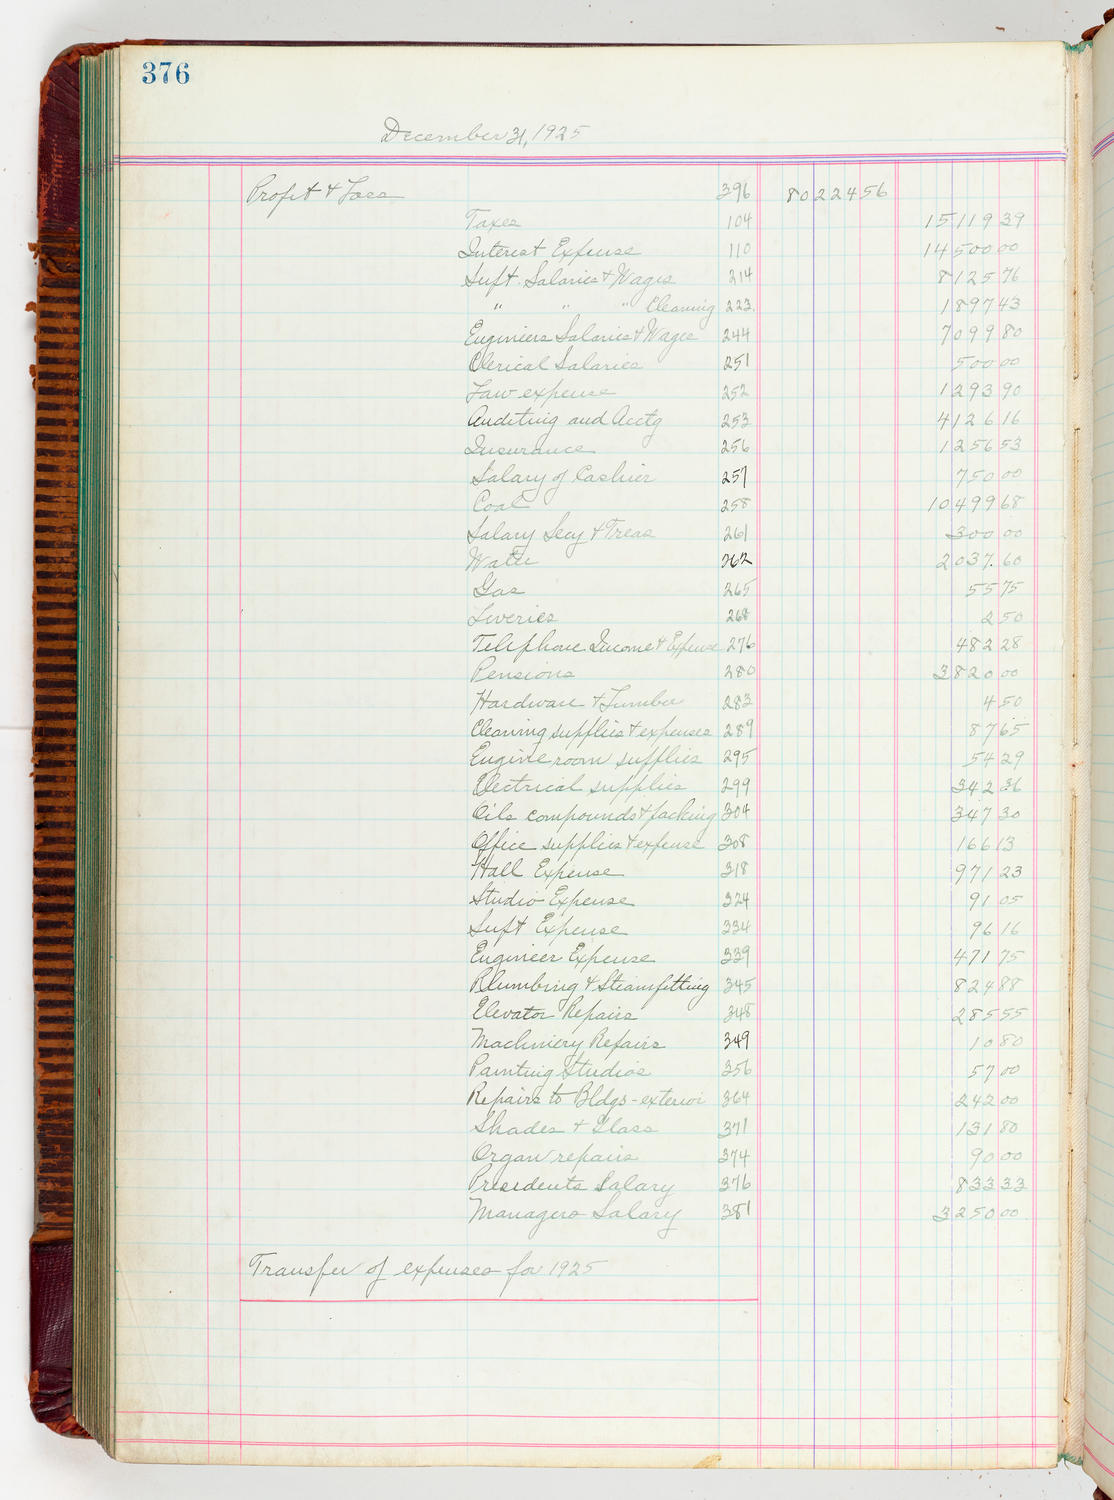 376
December 31, 1925
Profit & Loss 396 80224 56
Taxes 104 15119 39
Interest Expense 110 14500 00
Supt. Salaries & Wages 214 8125 76
" " " Cleaning 223 1897 43
Engineers Salaries & Wages 244 7099 80
Clerical Salaries 251 500 00
Law expense 252 1293 90
Auditing and Acctg 253 4126 16
Insurance 256 1256 53
Salary of Cashier 257 750 00
Coal 258 10499 68
Salary Secy & Treas 261 300 00
Water 262 2037.60
Gas 265 55 75
Liveries 268 2 50
Telephone Income & Expense 276 482 28
Pensions 280 3820 00
Hardware & Lumber 283 4 50
Cleaning supplies & expenses 289 87 65
Engine room supplies 295 54 29
Electrical supplies 299 342 36
Oils compounds & packing 304 347 30
Office supplies & expense 308 166 13
Hall Expense 318 971 23
Studio Expense 324 91 05
Supt Expense 334 96 16
Engineer Expense 339 471 75
Plumbing & Steamfitting 345 824 88
Elevator Repairs 348 285 55
Machinery Repairs 349 10 80
Painting Studios 356 57 00
Repairs to Bldgs - exterior 364 242 00
Shades & Glass 371 131 80
Organ repairs 374 90 00
Presidents Salary 376 833 33
Managers Salary 381 3250 00
Transfer of expenses for 1925